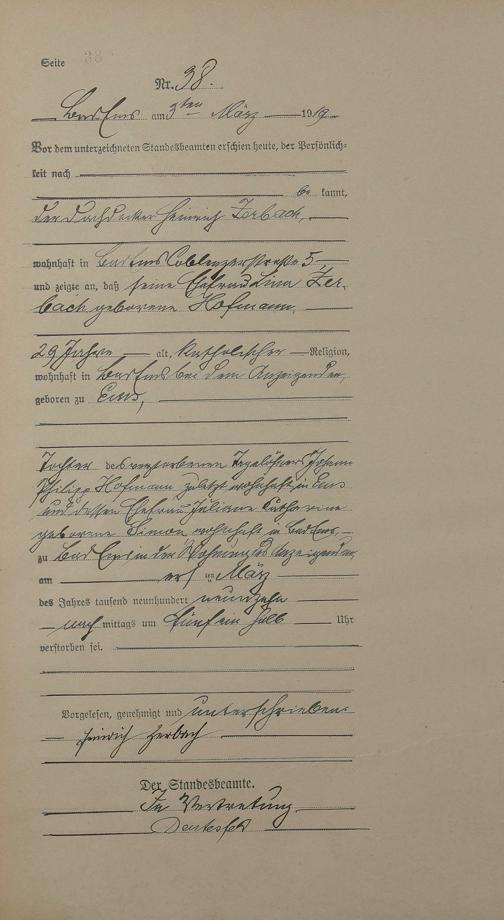 Seite 38
Nr. 38.
Bad Ems am 3ten März 1919
Vor dem unterzeichneten Standesbeamten erschien heute, der Persönlich-
keit nach
be kannt,
der Dachdecker Heinrich Zerbach,
wohnhaft in Bad Ems Coblenzerstraße 5
und zeigte an, daß seine Ehefrau Lina Zer-
bach geborene Hofmann,
29 Jahre alt, katholischer Religion,
wohnhaft in Bad Ems bei dem Anzeigenden,
geboren zu Ems,
Tochter des verstorbenen Tagelöhners Johann
Philipp Hofmann zuletzt wohnhaft in Ems
und dessen Ehefrau Juliane Katharine
geborene Simon wohnhaft in Bad Ems,
zu Bad Ems in der Wohnung des Anzeigenden,
am ten März
des Jahres tausend neunhundert neunzehn
nach mittags um fünf ein halb Uhr
verstorben sei.
Vorgelesen, genehmigt und unterschrieben.
Heinrich Zerbach
Der Standesbeamte.
In Vertretung